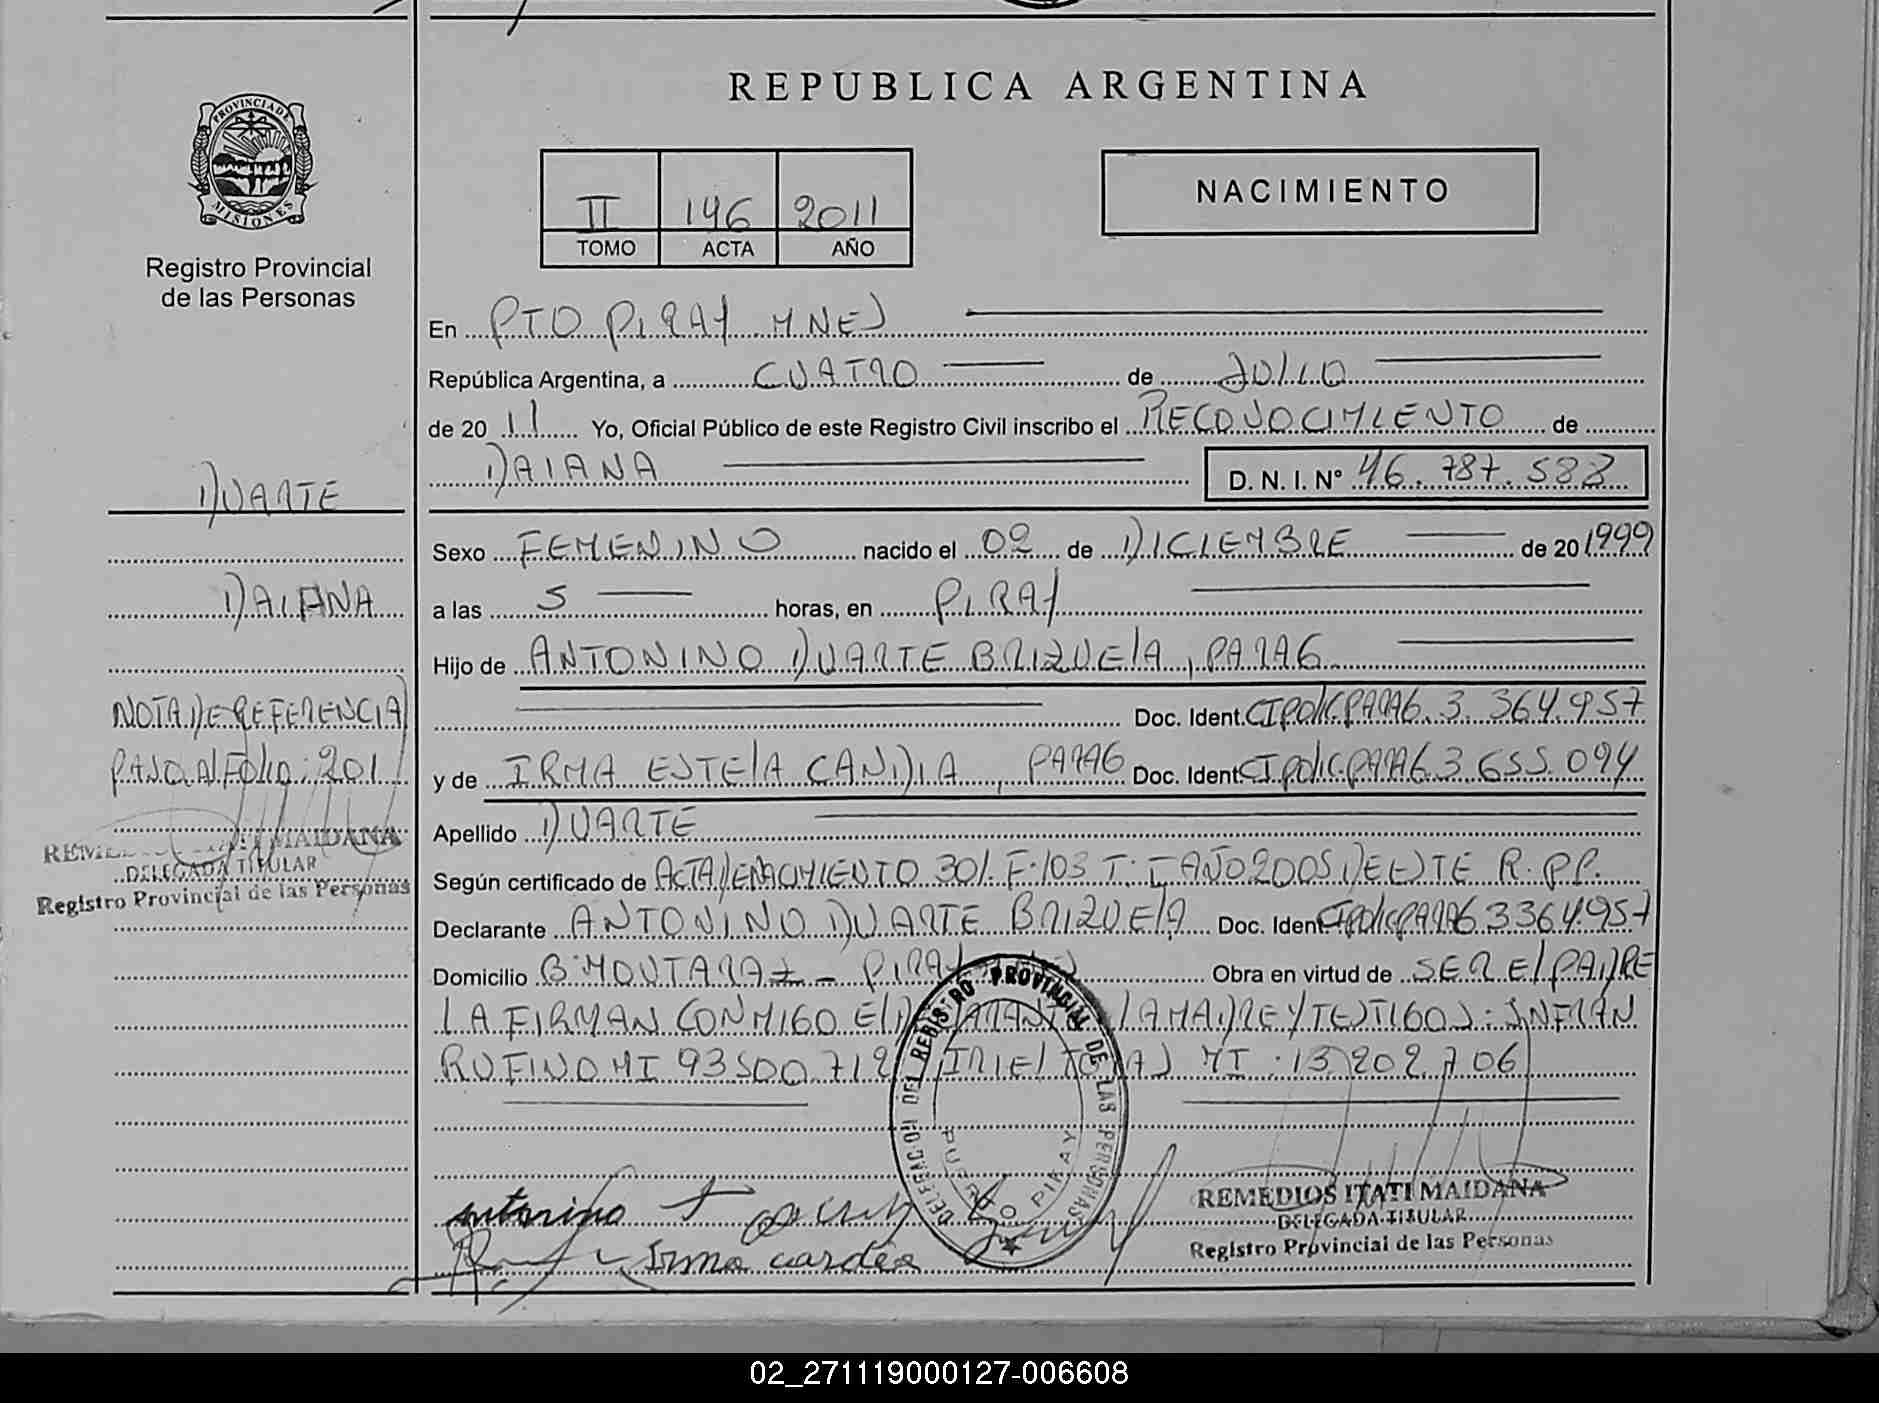 REPUBLICA ARGENTINA
PROVINCIA DE MISIONES
Registro Provincial
de las Personas
II 146 2011
TOMO ACTA AÑO
NACIMIENTO
En PTO PIRAY MNES
República Argentina, a CUATRO de JULIO
de 20 11 Yo, Oficial Público de este Registro Civil inscribo el RECONOCIMIENTO de
DAIANA D. N. I. Nº 46.787.583
DUARTE
Sexo FEMENINO nacido el 02 de DICIEMBRE de 20 1999
DAIANA
a las 5 horas, en PIRAY
Hijo de ANTONINO DUARTE BRIZUELA, PARAG
Doc. Ident. CIPOLICPARAG. 3.364.957
NOTA DE REFERENCIA
PASO Al Folio: 201
y de IRMA ESTELA CANDIA, PARAG Doc. Ident CIPolicPARAG 3 655.094
Apellido DUARTE
REMEDIOS ITATI MAIDANA
DELEGADA TITULAR
Registro Provincial de las Personas
Según certificado de ACTA DE NACIMIENTO 301. F:103 T: I AÑO 2005 DE ESTE R.PP.
Declarante ANTONINO DUARTE BRIZUELA Doc. Ident CIPolicPARAG 3364.957
Domicilio Bº MONTARAZ - PIRAY Obra en virtud de SER El PADRE
LA FIRMAN CONMIGO El LA MADRE Y TESTIGOS: INFRAN
RUFINO MI 93500 712 MI: 13 202 706
DELEGADO DEL REGISTRO PROVINCIAL DE LAS PERSONAS
PUERTO PIRAY
antonino
Irma candia
REMEDIOS ITATI MAIDANA
DELEGADA TITULAR
Registro Provincial de las Personas
02_271119000127-006608